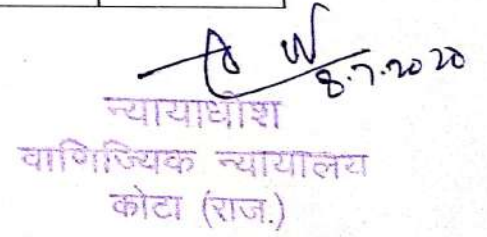 8.7.2020
न्यायाधीश
वाणिज्यिक न्यायालय
कोटा (राज.)